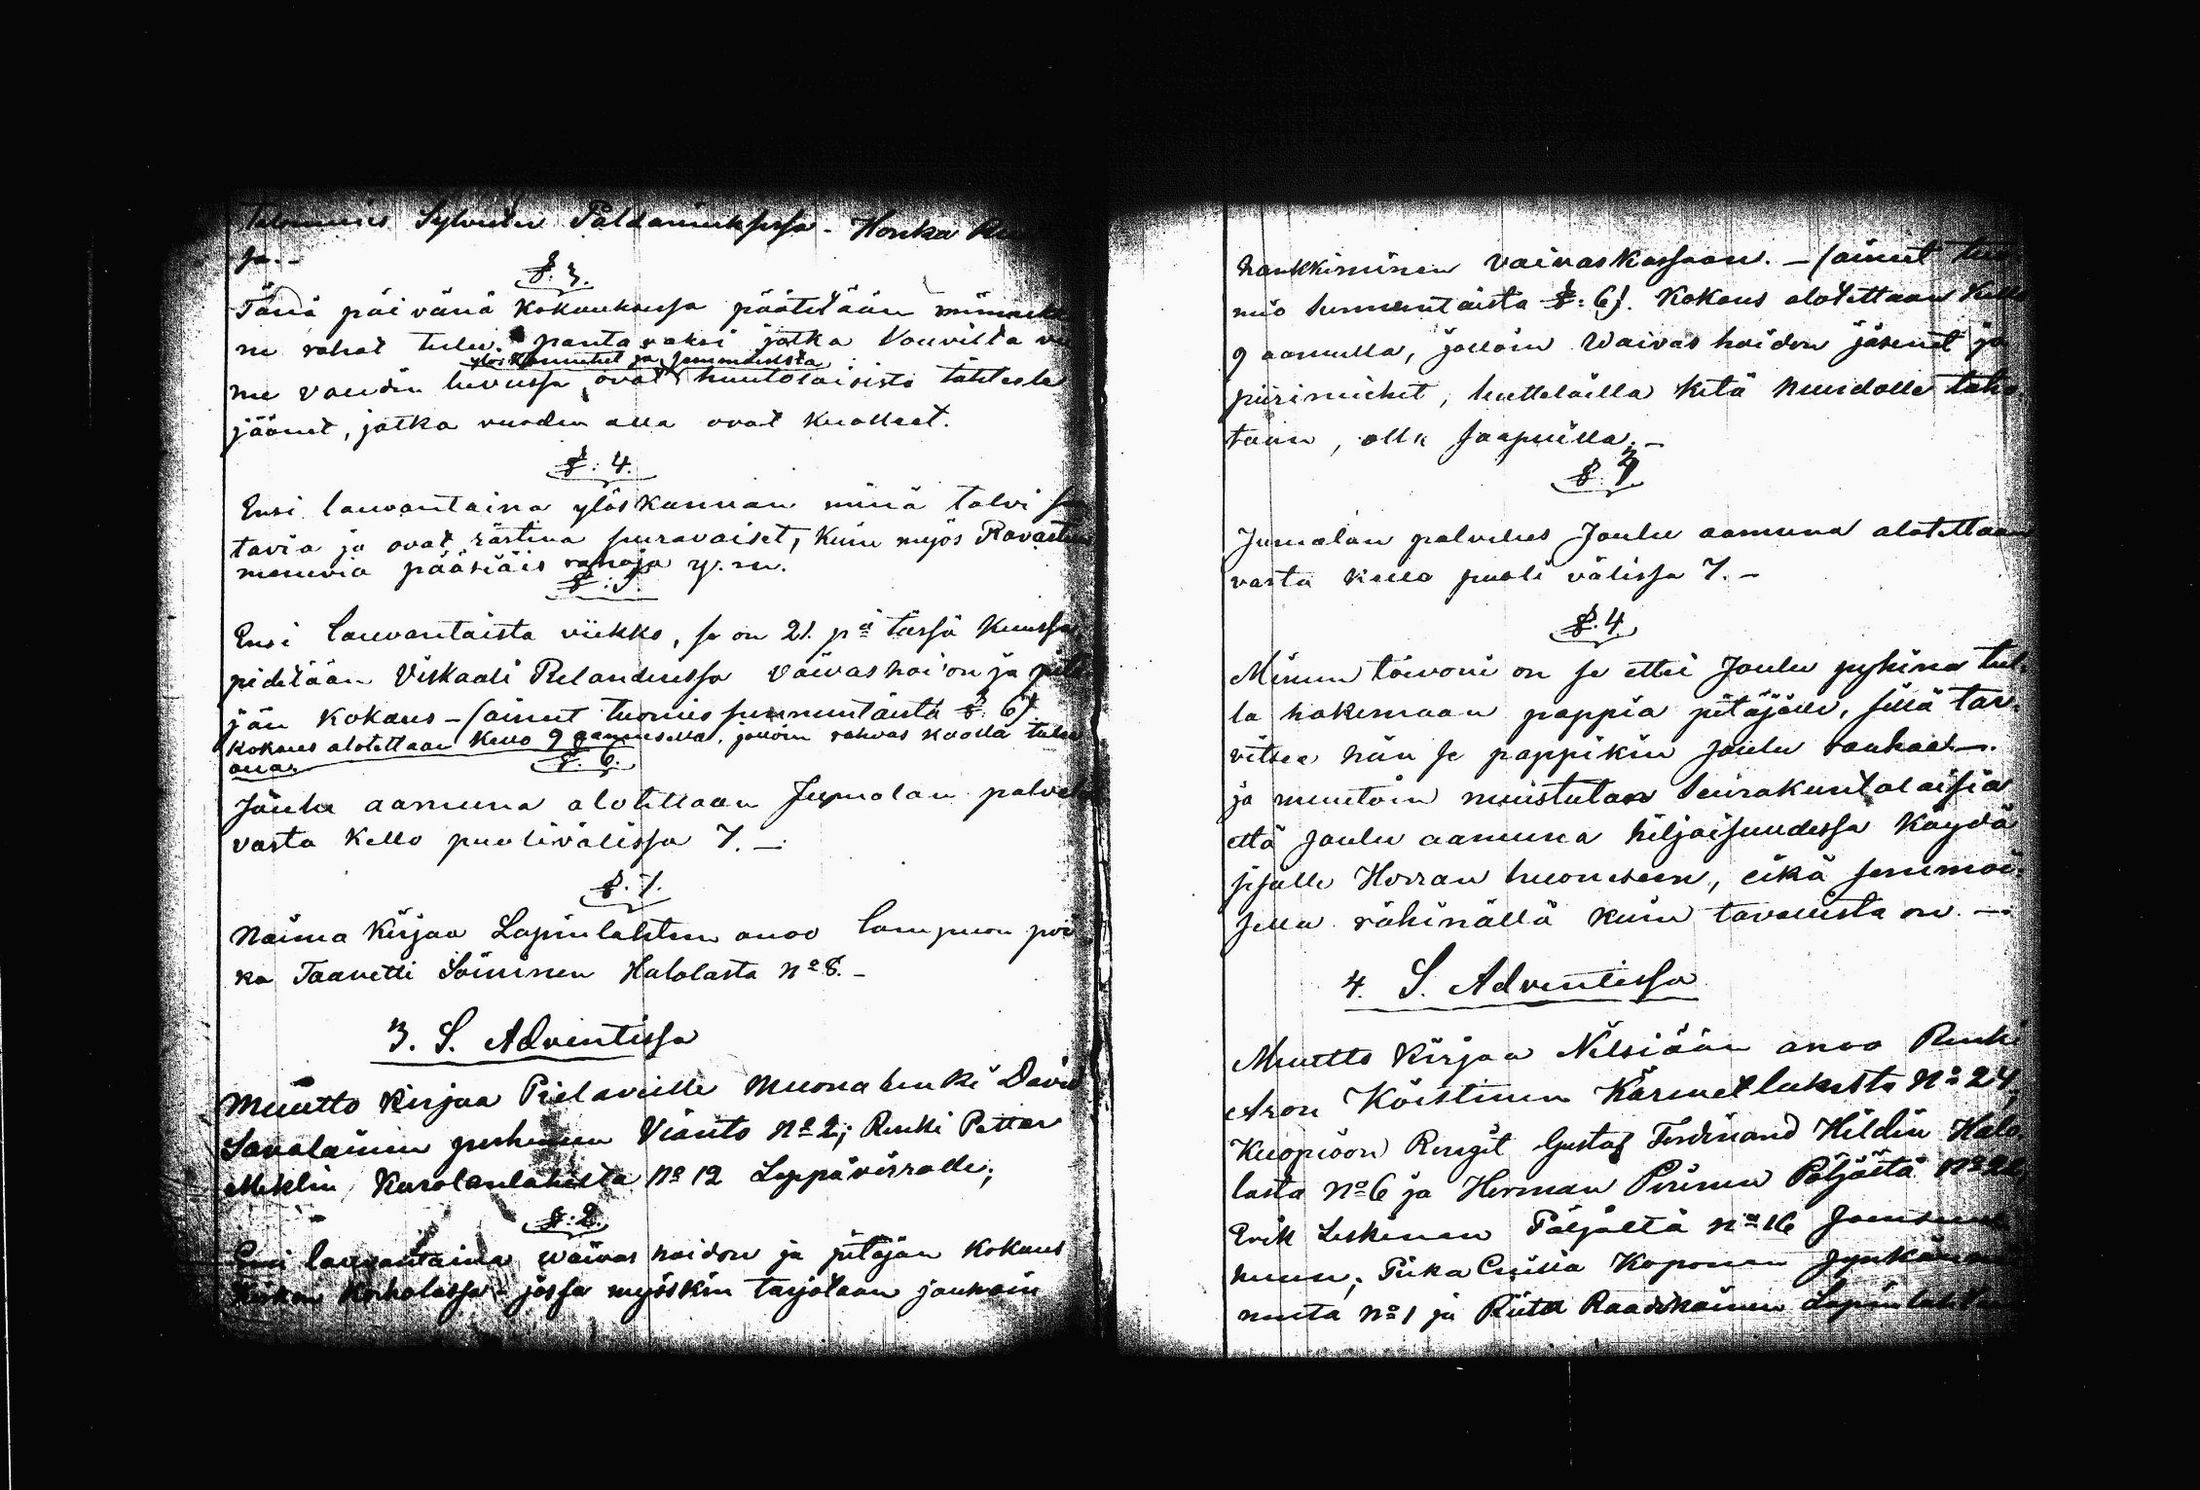 Talonmies Sylvester Paldaniuksessa - Honka
sa. -
§. 3.
Tänä päivänä Kokouksessa päätetään
ne rahat tulee pantavaksi jotka Vouvilta
ylöskannetut ja
me voudin luvussa ovat huutolaisista tähteelle
jäänet, jotka vuoden alla ovat kuolleet.
§: 4.
Ensi lauvantaina ylöskannan minä talvi
tavia ja ovat rästinä seuravaiset, kuin myös
pääsiäis rahoja y.m.
§: 5.
Ensi lauvantaista viikko, se on 21. pä tässä kuussa
pidetään Viskaali Relanderissa Vaivashoi'on ja pitä-
jän Kokous - (ainut tuomio sunnuntaista §. 6)
Kokous alotettaan kello 9 aamusella, jolloin rahvas koolla tulee
olla.
§. 6.
Joulu aamuna alotettaan Jumalan palvelus
vasta Kello puolivälissä 7. -
§. 7.
Naima Kirjaa Lapinlahteen anoo Lampuon poi-
ka Taavetti Soininen Halolasta No 8. -
3. S. Adventissa
Muutto Kirjaa Pielaveille Muonarenki David
Savolainen perheneen Vianto No 2; Renki Petter
Miklin, Kurolanlahesta No 12 Leppävirralle;
§: 2.
Ensi lauvantaina waivas hoidon ja pitäjän Kokous
Korholassa - jossa myöskin tarjotaan jauhoin
hankkiminen vaivaskassaan. - (ainut tuo-
mio sunnuntaista §: 6). Kokous alotettaan kello
9 aamulla, jolloin Waivashoidon jäsenet ja
piirimiehet, luettelöilla ketä huudolle tahо-
taan, olla saapuilla. -
§ 3
Jumalan palvelus Joulu aamuna alotettaan
vasta kello puoli välissä 7. -
§. 4.
Minun toivoni on se ettei Joulu pyhinä tul-
la hakemaan pappia pitäjälle, sillä tar-
vitsee niin se pappikin Joulu rauhaa -.
ja muutoin muistutan Seurakuntalaisia
että Joulu aamuna hiljaisuudessa käydä
sisälle Herran huoneseen, eikä semmoi-
sella rähinällä kuin tavallista on. -
4. S. Adventissa
Muutto Kirjaa Nilsiään anoo Renki
Aron Koistinen Kärmetlahesta No 24,
Kuopioon Rengit Gustaf Ferdinand Hildin Halo-
lasta No 6 ja Herman Piirinen Pöljältä No
Erik Leskinen Pöljältä No 16
Piika Koponen
No 1 ja Riitta Raatikainen Lapinlahteen